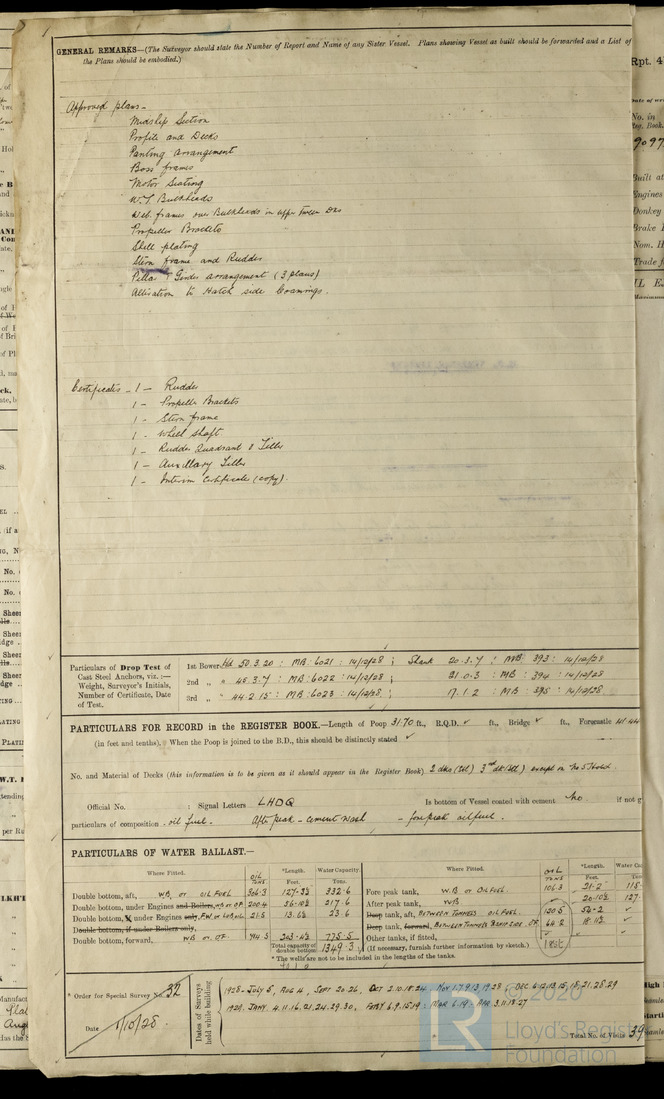 GENERAL REMARKS—(The Surveyor should state the Number of Report and Name of any Sister Vessel. Plans showing Vessel as built should be forwarded and a List of
the Plans should be embodied.)
Approved plans -
Midship Section
Profile and Decks
Panting arrangement
Boss frames
Motor Seating
W.T. Bulkheads
Web frames over Bulkheads in upper tween Dks
Propeller Brackets
Shell plating
Stern frame and Rudder
Pillar & Girder arrangement (3 plans)
Alteration to Hatch side Coamings.
Certificates - 1 - Rudder
1 - Propeller Brackets
1 - Stern frame
1 - Wheel shaft
1 - Rudder Quadrant & Tiller
1 - Auxillary Tiller
1 - Interim Certificate (copy).
Particulars of Drop Test of Cast Steel Anchors, viz.:— Weight, Surveyor's Initials, Number of Certificate, Date of Test.
1st Bower 50.3.20 : MB : 6021 : 14/12/28 ; Shank 20.3.7 : MB : 393 : 14/12/28
2nd „ „ 45.3.7 : MB : 6022 : 14/12/28 ; 21.0.3 : MB : 394 : 14/12/28
3rd „ „ 44.2.15 : MB : 6023 : 14/12/28 ; 17.1.2 : MB : 395 : 14/12/28
PARTICULARS FOR RECORD in the REGISTER BOOK.—Length of Poop 31.70 ft., R.Q.D. ✓ ft., Bridge ✓ ft., Forecastle 41.44
(in feet and tenths). When the Poop is joined to the B.D., this should be distinctly stated ✓
No. and Material of Decks (this information is to be given as it should appear in the Register Book) 2 dks (Stl) 3rd dk (Stl) except in No 5 Hold.
Official No. : Signal Letters LHDQ Is bottom of Vessel coated with cement No if not g
particulars of composition oil fuel. After peak - cement wash - fore peak oil fuel.
PARTICULARS OF WATER BALLAST.—
Where Fitted. OIL TONS *Length. Feet. Water Capacity. Tons.
Double bottom, aft, W.B. or OIL FUEL 306.3 332.6
Double bottom, under Engines and Boilers, WB or OF 200.4 217.6
Double bottom, under Engines only, 21.5 23.6
Double bottom, if under Boilers only,
Double bottom, forward, WB or OF 775.5
Total capacity of double bottom 1349.3
Where Fitted. OIL TONS *Length. Feet. Water Ca
Fore peak tank, W.B or OIL FUEL 106.3 21.2 115
After peak tank, WB 127
Deep tank, aft, BETWEEN TUNNELS OIL FUEL. 130.5 52-2 ✓
Deep tank, forward, 64.2
Other tanks, if fitted,
(If necessary, furnish further information by sketch.)
* The wells are not to be included in the lengths of the tanks.
* Order for Special Survey No. 32
Date 1/10/28
Dates of Surveys held while building
1928 - July 5, Aug 4, Sept 20.26, Oct 2.10.18.24 Nov 1.7.9.13.19.28 : Dec 6.12.13.15.18.21.28.29
1929, Jany 4.11.16.21.24.29.30, Feby 6.9.15.19 : Mar 6.19 - Apr 3.11.18.27
Total No. of Visits 39
Rpt. 4
No. in
Reg. Book.
Built at
Engines
Donkey
Brake
Nom. H
Trade f
© 2020
LR
Lloyd's Register
Foundation